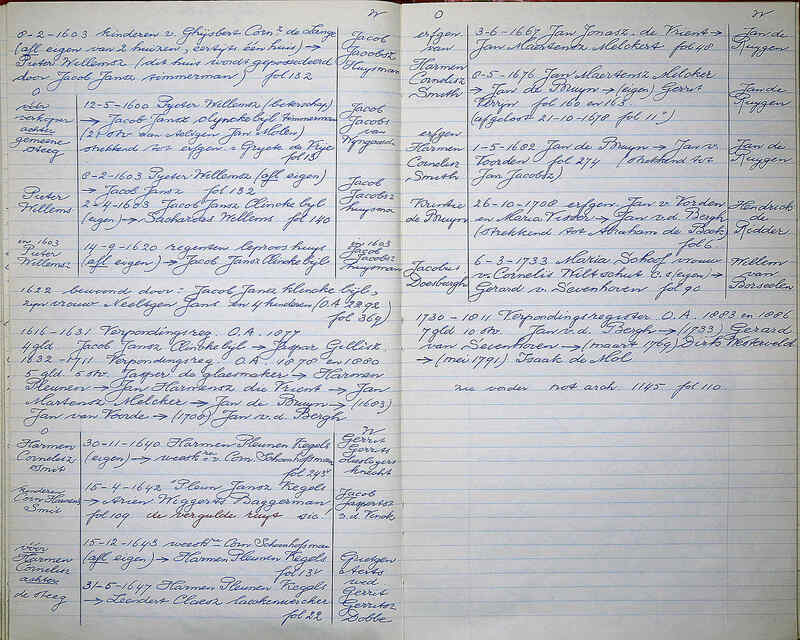 W
8-2-1603 kinderen v. Ghijsbert Corn.z de Lange
(afl eigen van 2 huizen, eertijts één huis) →
Pieter Willemsz (dit huis wordt geproedeerd
door Jacob Jansz timmerman) fol 132
Jacob
Jacobsz
Huysman
O
vóór
verkoper
achter
gemeene
steeg
12-5-1600 Pyeter Willemsz
→ Jacob Jansz clynckebyl timmerman
Jan Molen)
strekkend tot erfgen. v Gryete de Vrije
fol 13
Jacob
Jacobs
van
Wyngaerd
8-2-1603 Pyeter Willemsz (afl eigen)
→ Jacob Jansz fol 132
Pieter
Willems
2-4-1603 Jacob Jansz Clinckebyl
(eigen) → Sacharias Willems fol 140
Jacob
Jacobsz
huysman
en 1603
Pieter
Willemsz
14-9-1620 regenten leprooshuys
(afl eigen) → Jacob Jansz Clinckebyl
en 1603
Jacob
Jacobsz
huysman
1622 bewoond door: Jacob Jansz klinckebyl,
zijn vrouw Neeltgen Jans en 4 kinderen (O.A. 2292
fol 369)
1616-1631 Verpondingsreg. O.A. 1877
4 gld Jacob Jansz Clinckebyl → Jaspar Gillisz.
1632-1711 Verpondingsreg. O.A. 1878 en 1880
5 gld 5 str. Jasper de glaesmaker → Harmen
Pleunen → Jan Harmensz die Vrient → Jan
Martensz Melcker → Jan de Bruyn → (1683)
Jan van Voorde → (1700) Jan v.d. Bergh
O
W
Harmen
Cornelisz
Smit
30-11-1640 Harmen Pleunen Kegels
(eigen) → Corn. Schoonhofman
fol 243v
Gerrit
Gerrits
knecht
kinderen
Corn Harmens
Smid
15-4-1642 Pleun Jansz Kegels
→ Arien Wiggerts Baggerman
fol 109 de vergulde ruyt sic!
Jacob
Jaspersz
v.d. Vinck
vóór
Harmen
Cornelisz
achter
de steeg
15-12-1643 Corn Schoonhofman
(afl eigen) → Harmen Pleunen Kegels
fol 131
31-5-1647 Harmen Pleunen Kegels
→ Leendert Claesz
fol 22
Aerts
wed
Gerrit
Gerritsz
Dobbe
O
W
erfgen
van
Harmen
Cornelisz
Smith
3-6-1667 Jan Jonasz. de Vrient →
Jan Maertensz Melckert fol 48
Jan de
Ruygen
8-5-1676 Jan Maertensz Melcker
→ Jan de Bruyn → (eigen) Gerrit
fol 160 en 163
(afgelost 21-10-1678 fol 11v)
Jan de
Ruygen
erfgen
Harmen
Cornelisz
Smith
1-5-1682 Jan de Bruyn → Jan v.
Voorden fol 274 (strekkend tot
Jan Jacobsz)
Jan de
Ruygen
de Bruyn
26-10-1708 erfgen. Jan v. Vorden
en Maria Visser → Jan v.d. Bergh
(strekkend tot Abraham de Bock)
fol 6v
Hendrick
de
Ridder
Jacobus
Doesburgh
6-3-1733 Maria Schoof, vrouw
v. Cornelis Wiltschut c.s. (eigen) →
Gerard v. Sevenhoven fol 90
Willem
van
Borseelen
1730-1811 Verpondingsregister O.A. 1883 en 1886
7 gld 10 str. Jan v.d. Bergh → (1733) Gerard
van Sevenhoven → (maart 1769) Dirk Westveld
→ (mei 1791) Isaak de Mol
zie verder not. arch. 1145 fol 110